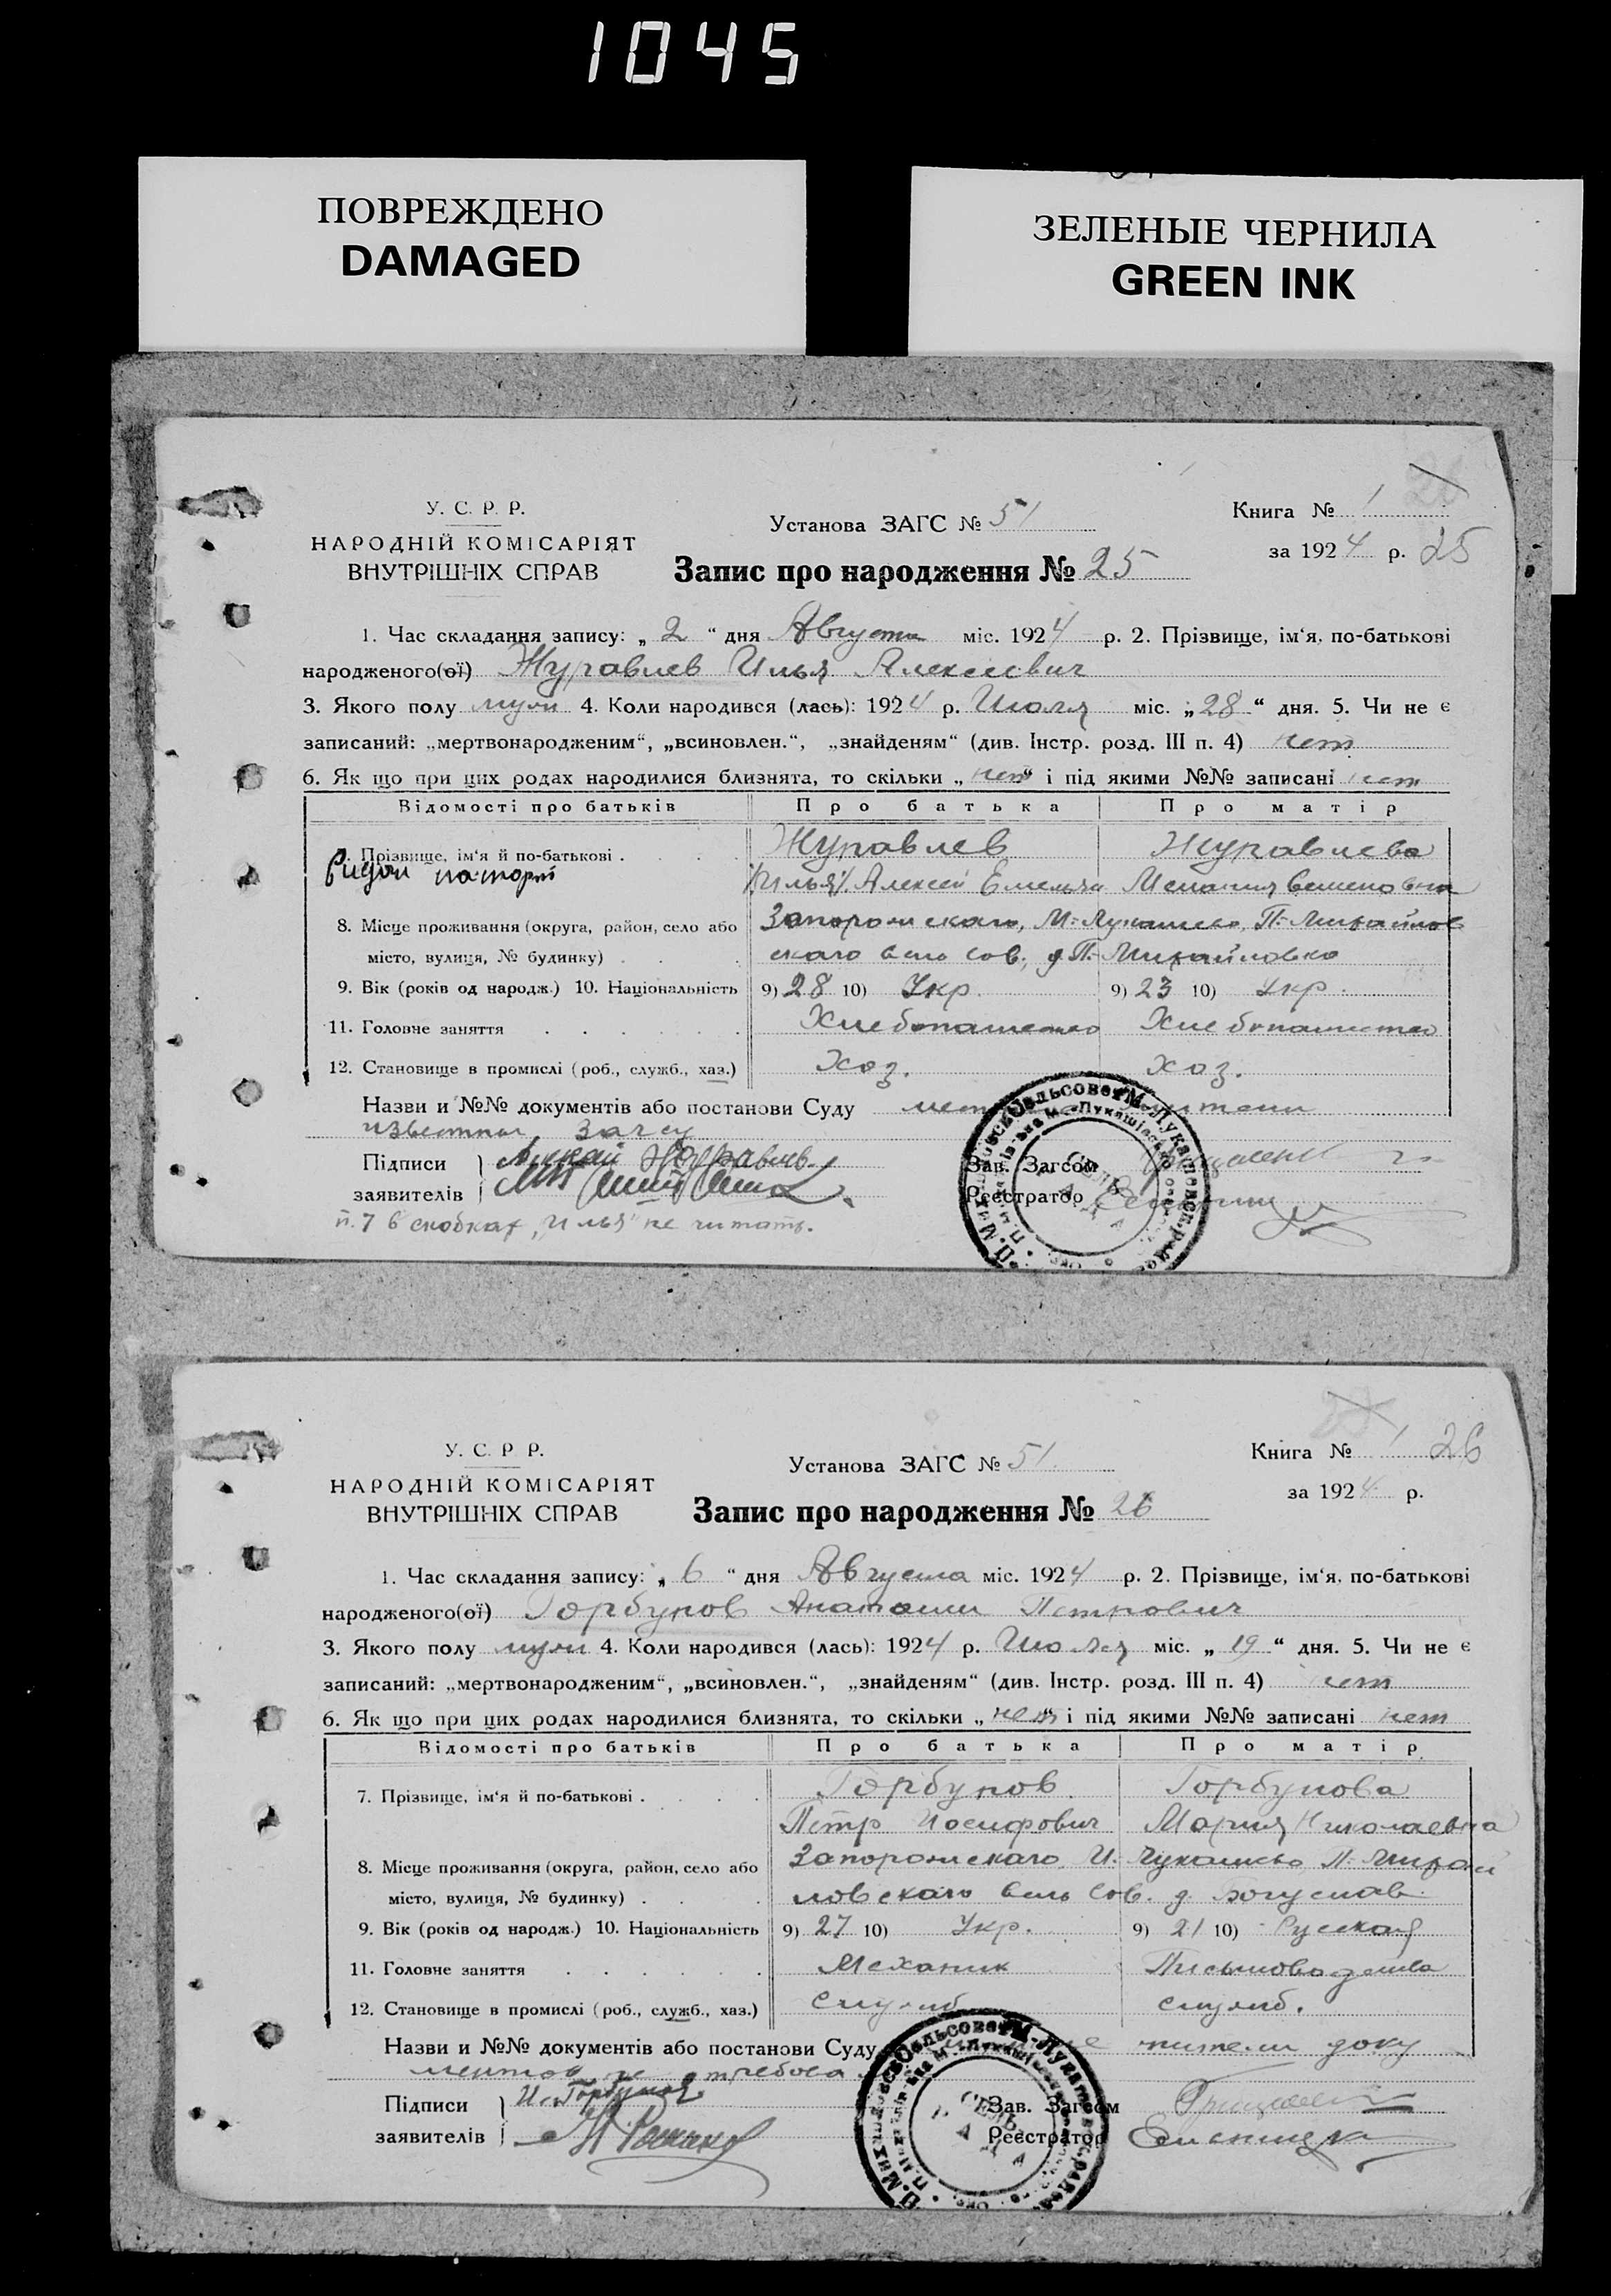 1045
ПОВРЕЖДЕНО
DAMAGED
ЗЕЛЕНЫЕ ЧЕРНИЛА
GREEN INK
У. С. Р. Р.
НАРОДНІЙ КОМІСАРІЯТ
ВНУТРІШНІХ СПРАВ
Установа ЗАГС № 51
Запис про народження № 25
Книга № 1
за 1924 р. 25
1. Час складання запису: „ 2 “ дня Августа міс. 1924 р. 2. Прізвище, ім‘я, по-батькові
народженого(ої) Журавлев Илья Алексеевич
3. Якого полу муж 4. Коли народився (лась): 1924 р. Июля міс. „ 28 “ дня. 5. Чи не є
записаний: „мертвонародженим“, „всиновлен.“, „знайденям“ (див. Інстр. розд. III п. 4) нет
6. Як що при цих родах народилися близнята, то скільки „ нет “ і під якими №№ записані нет
Відомості про батьків Про батька Про матір
Прізвище, ім‘я й по-батькові . Журавлев Журавлева
/Илья/ Алексей Емельян Мелания Семеновна
8. Місце проживання (округа, район, село або Запорожскаго, М.-Лукашево, П.-Михайлов
місто, вулиця, № будинку) скаго сель сов., д. П.-Михайловка
9. Вік (років од народж.) 10. Національність 9) 28 10) Укр. 9) 23 10) Укр.
11. Головне заняття Хлебопашество Хлебопашество
12. Становище в промислі (роб., служб., хаз.) Хоз. Хоз.
Назви и №№ документів або постанови Суду
известны загсу
Підписи Журавлев Зав. Загсом
заявителів Реєстратор
п. 7 в скобках „Илья“ не читать.
У. С. Р. Р.
НАРОДНІЙ КОМІСАРІЯТ
ВНУТРІШНІХ СПРАВ
Установа ЗАГС № 51
Запис про народження № 26
Книга № 1 26
за 1924 р.
1. Час складання запису: „ 6 “ дня Августа міс. 1924 р. 2. Прізвище, ім‘я, по-батькові
народженого(ої) Горбунов Анатолий Петрович
3. Якого полу муж 4. Коли народився (лась): 1924 р. Июля міс. „ 19 “ дня. 5. Чи не є
записаний: „мертвонародженим“, „всиновлен.“, „знайденям“ (див. Інстр. розд. III п. 4) нет
6. Як що при цих родах народилися близнята, то скільки „ нет “ і під якими №№ записані нет
Відомості про батьків Про батька Про матір
7. Прізвище, ім‘я й по-батькові . Горбунов Горбунова
Петр Иосифович Мария Николаевна
8. Місце проживання (округа, район, село або Запорожскаго, Лукашево П.-Михай
місто, вулиця, № будинку) ловскаго сель сов. д. Богуслав
9. Вік (років од народж.) 10. Національність 9) 27 10) Укр. 9) 21 10) Русская
11. Головне заняття Механик Письмоводитель
12. Становище в промислі (роб., служб., хаз.) служб. служб.
Назви и №№ документів або постанови Суду жители доку
ментов не требова
Підписи Горбунов Зав. Загсом
заявителів Реєстратор